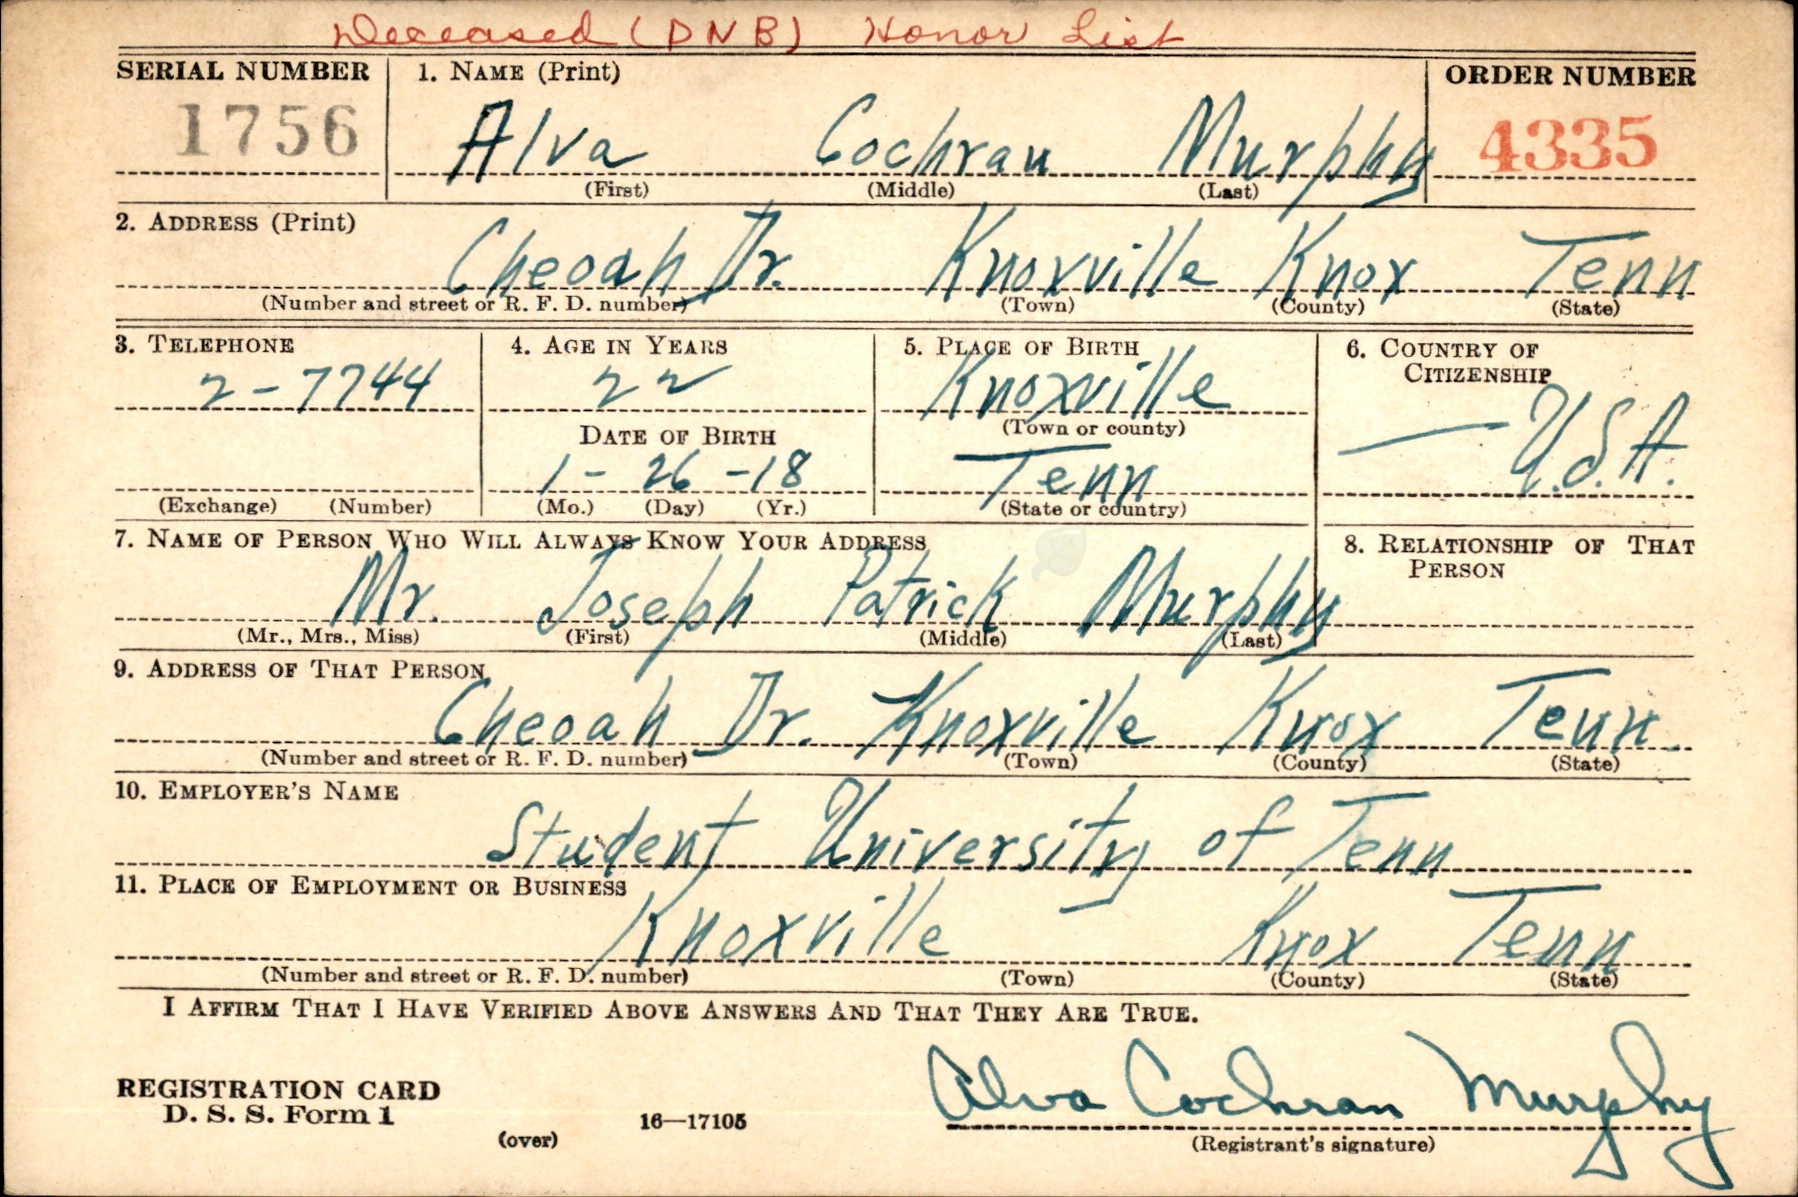 Deceased (DNB) Honor List
SERIAL NUMBER 1. NAME (Print) ORDER NUMBER
1756 Alva Cochran Murphy 4335
(First) (Middle) (Last)
2. ADDRESS (Print)
Cheoah Dr. Knoxville Knox Tenn
(Number and street or R. F. D. number) (Town) (County) (State)
3. TELEPHONE 4. AGE IN YEARS 5. PLACE OF BIRTH 6. COUNTRY OF CITIZENSHIP
2-7744 22 Knoxville
(Town or county)
DATE OF BIRTH
— U.S.A.
1-26-18 Tenn
(Exchange) (Number) (Mo.) (Day) (Yr.) (State or country)
7. NAME OF PERSON WHO WILL ALWAYS KNOW YOUR ADDRESS 8. RELATIONSHIP OF THAT PERSON
Mr. Joseph Patrick Murphy
(Mr., Mrs., Miss) (First) (Middle) (Last)
9. ADDRESS OF THAT PERSON
Cheoah Dr. Knoxville Knox Tenn.
(Number and street or R. F. D. number) (Town) (County) (State)
10. EMPLOYER'S NAME
Student University of Tenn
11. PLACE OF EMPLOYMENT OR BUSINESS
Knoxville — Knox Tenn
(Number and street or R. F. D. number) (Town) (County) (State)
I AFFIRM THAT I HAVE VERIFIED ABOVE ANSWERS AND THAT THEY ARE TRUE.
Alva Cochran Murphy
REGISTRATION CARD
D. S. S. Form 1 16—17105
(over) (Registrant's signature)